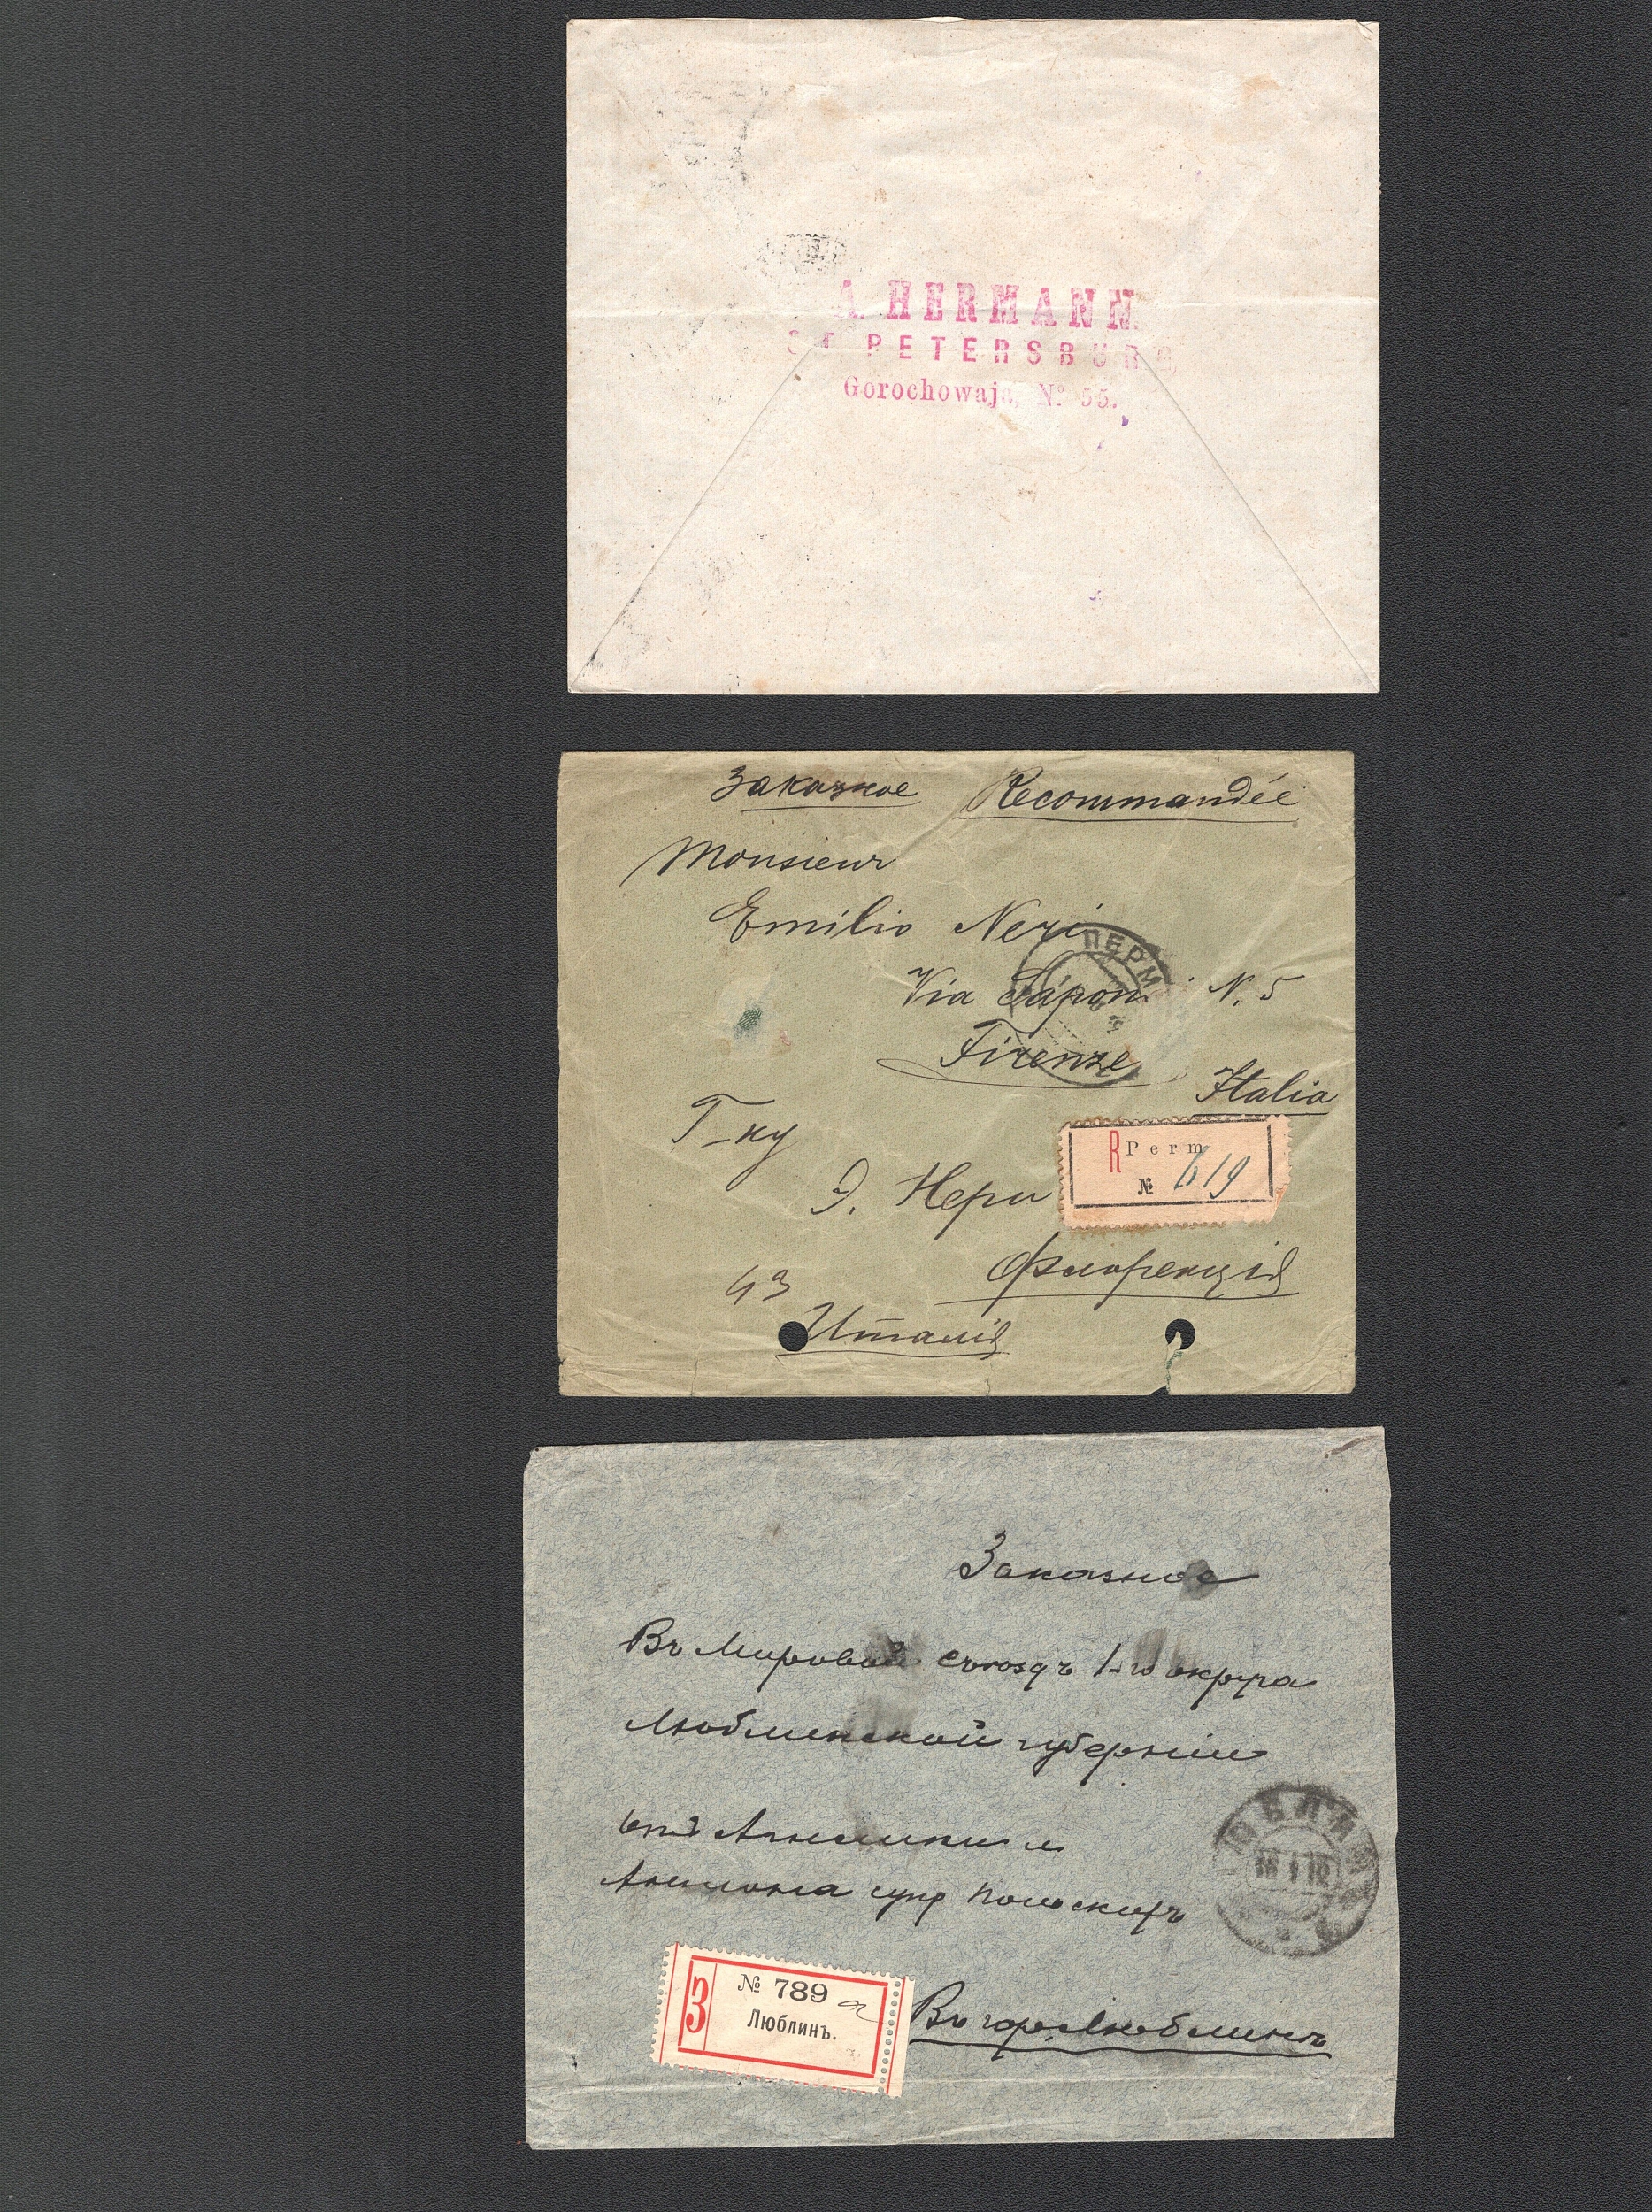 A. HERMANN.
ST. PETERSBURG,
Gorochowaja, № 55.
Заказное Recommandée
Monsieur
Emilio Neri
Via Saponi N. 5
Firenze
Italia
ПЕРМ
Г-ну
Э. Нери
R Perm
№ 619
Флоренція
43
Италія
Заказное
Въ Мировой съѣздъ 1-го округа
Люблинской губерніи
супр
ЛЮБЛИНЪ
18 1 10
З № 789
Люблинъ.
Въ гор. Люблинъ